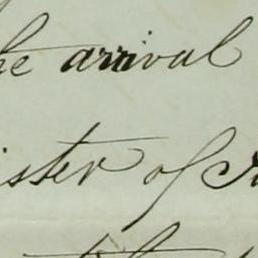 he arrival
ister of